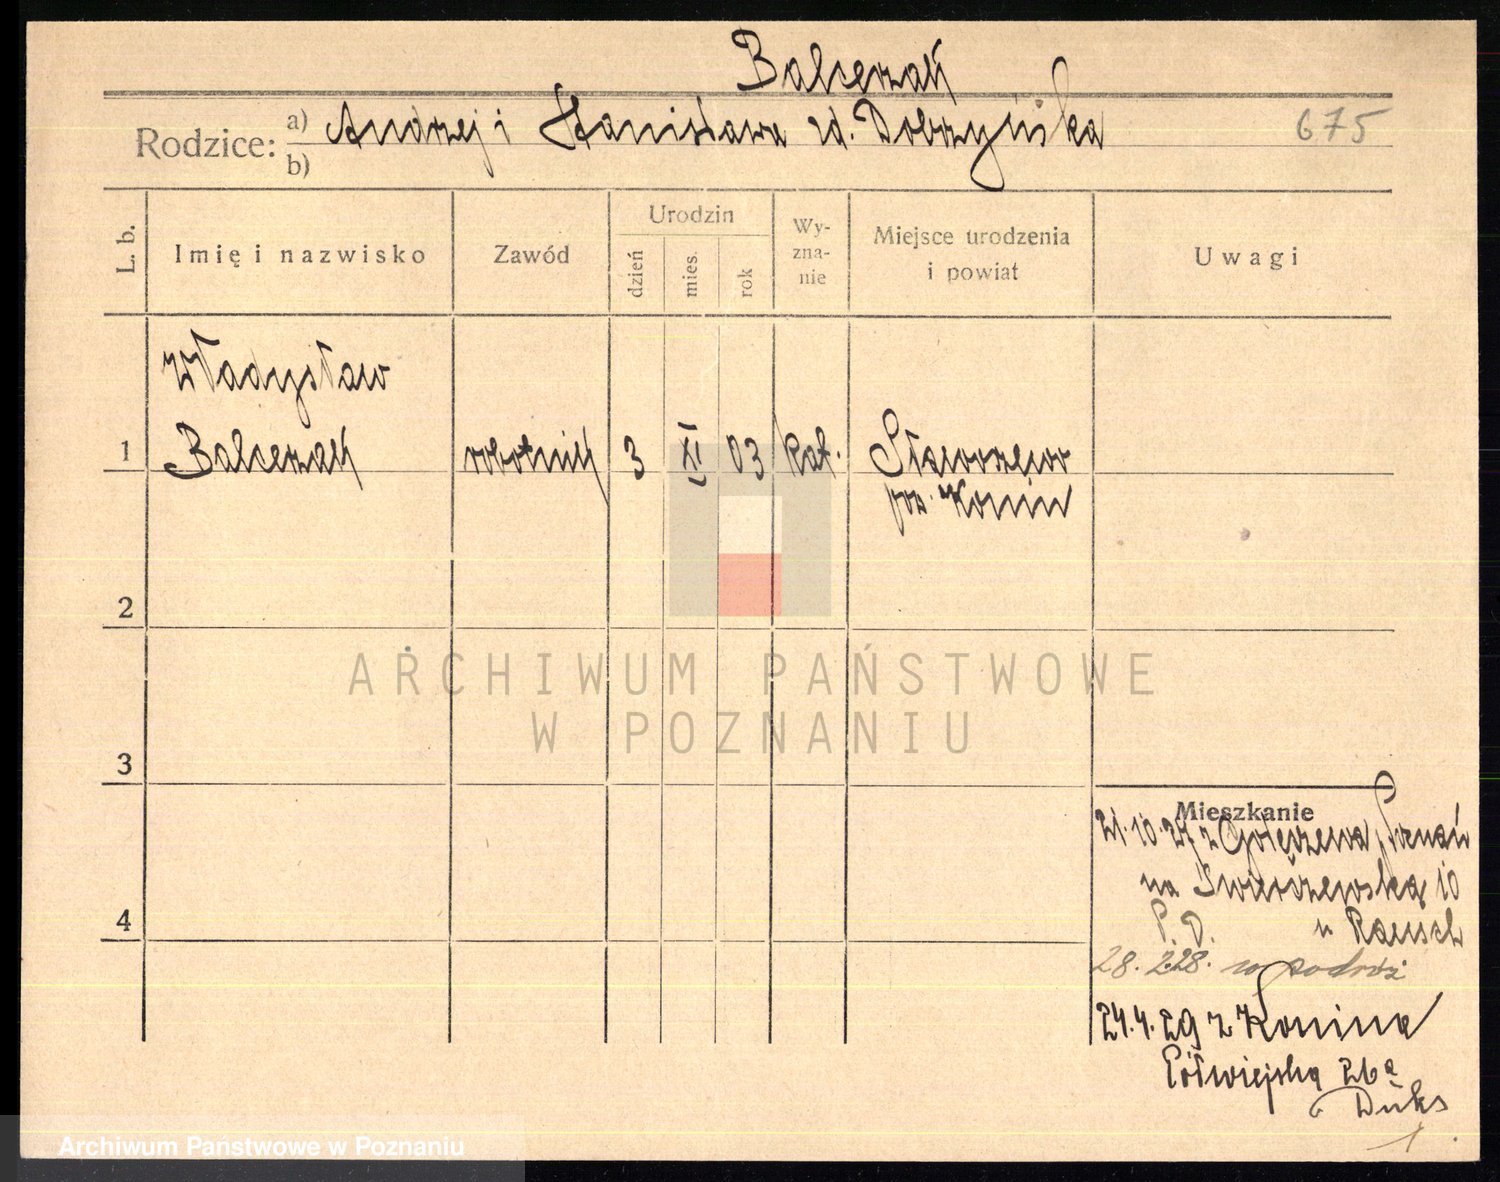 Balcerzak
Rodzice: a) Andrzej i Stanisława zd. Dobrzyńska 675
b)
L. b.
Imię i nazwisko
Zawód
Urodzin
dzień
mies.
rok
Wy-
zna-
nie
Miejsce urodzenia
i powiat
Uwagi
Władysław
1 Balcerzak robotnik 3 XI 03 kat.
pow. Konin
2
3
4
Mieszkanie
21.10.27 z Golęczewa, Poznań
na Swierczewską 10
P. D. u Rausch
28. 2.28. w podróż
24.4.29 z Konina
Półwiejska 26a
Duks
ARCHIWUM PAŃSTWOWE
W POZNANIU
Archiwum Państwowe w Poznaniu